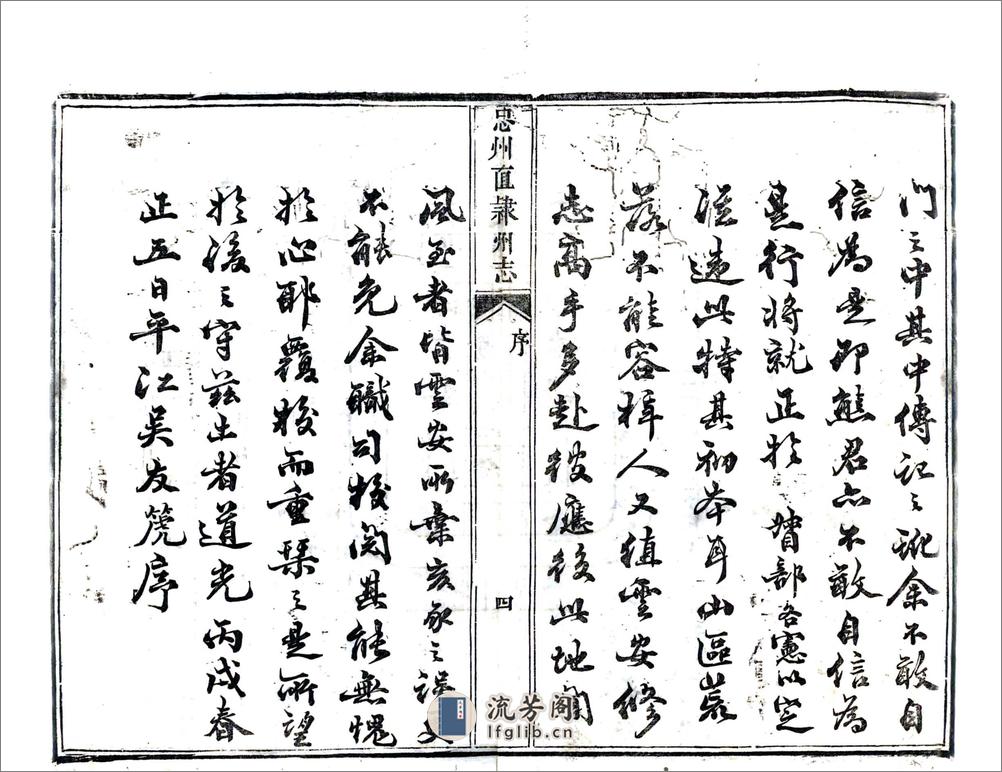 門之中其中傳記之訛余不敢自
信為是卽熊君亦不敢自信為
是行將就正於 督部各憲以定
從違此特其初本耳山區岩
落不能容梓人又值雲安修
志高手多赴彼應役此地聞
忠州直隸州志
序
四
風至者皆雲安所棄亥豕之誤
不能免余職司校閱其能無愧
於心耶覆校而重栞之是所望
於後之守茲土者道光丙戌春
正五日平江吳友箎序
流芳阁
lfglib.cn